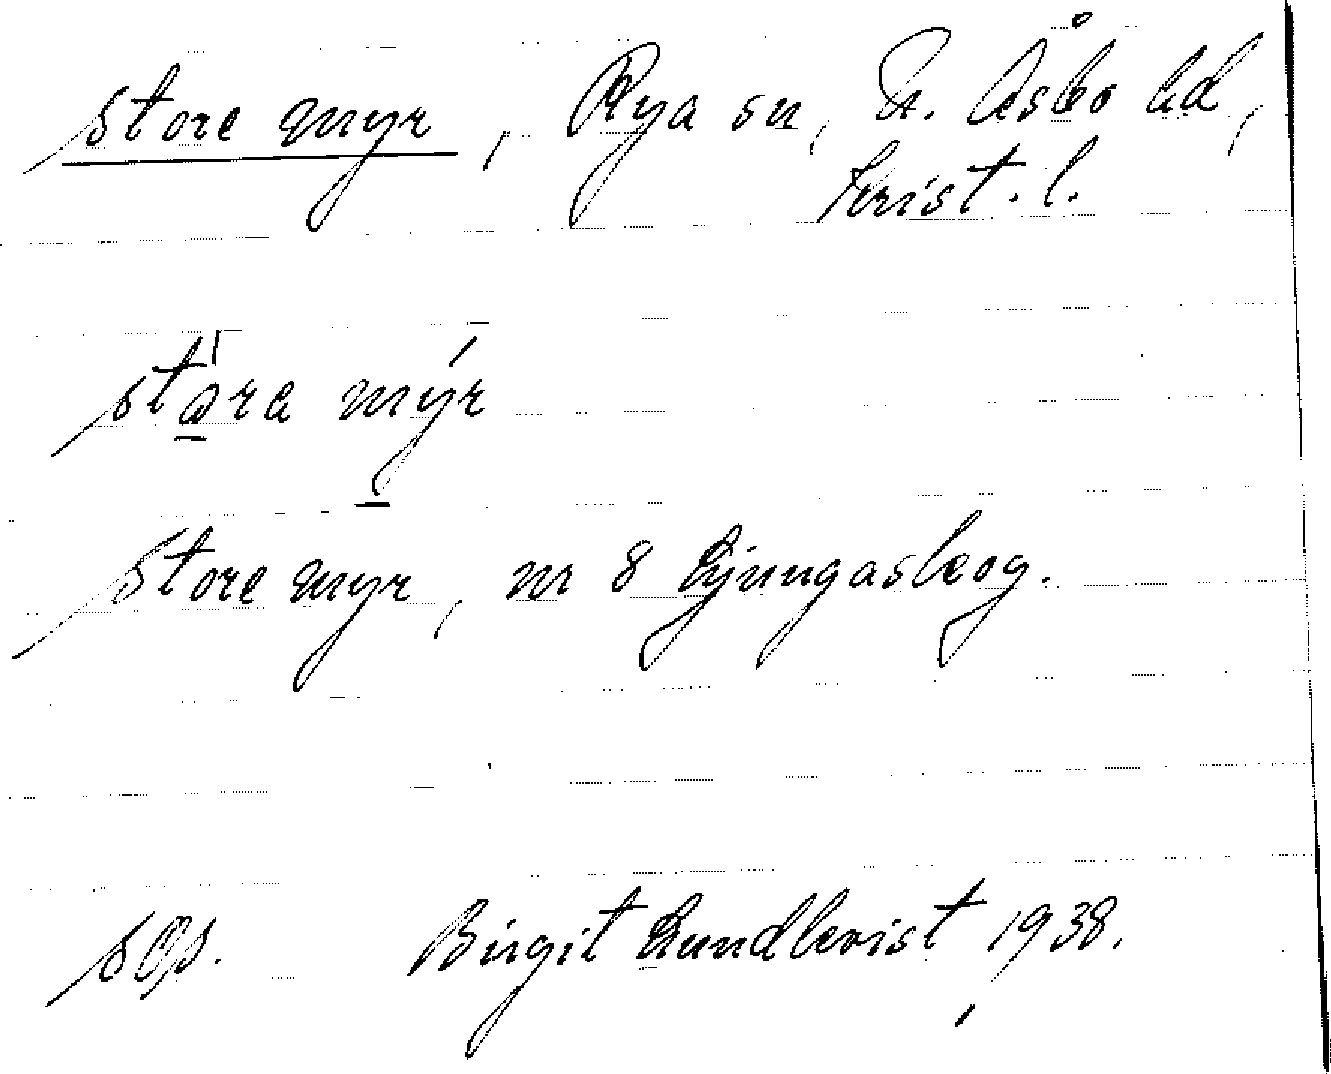 store myr, Rya sn, N. Åsbo hd,
Krist. l.
stora myr
Store myr, nr 8 Ljungaskog.
Birgit Lundkvist, 1938.